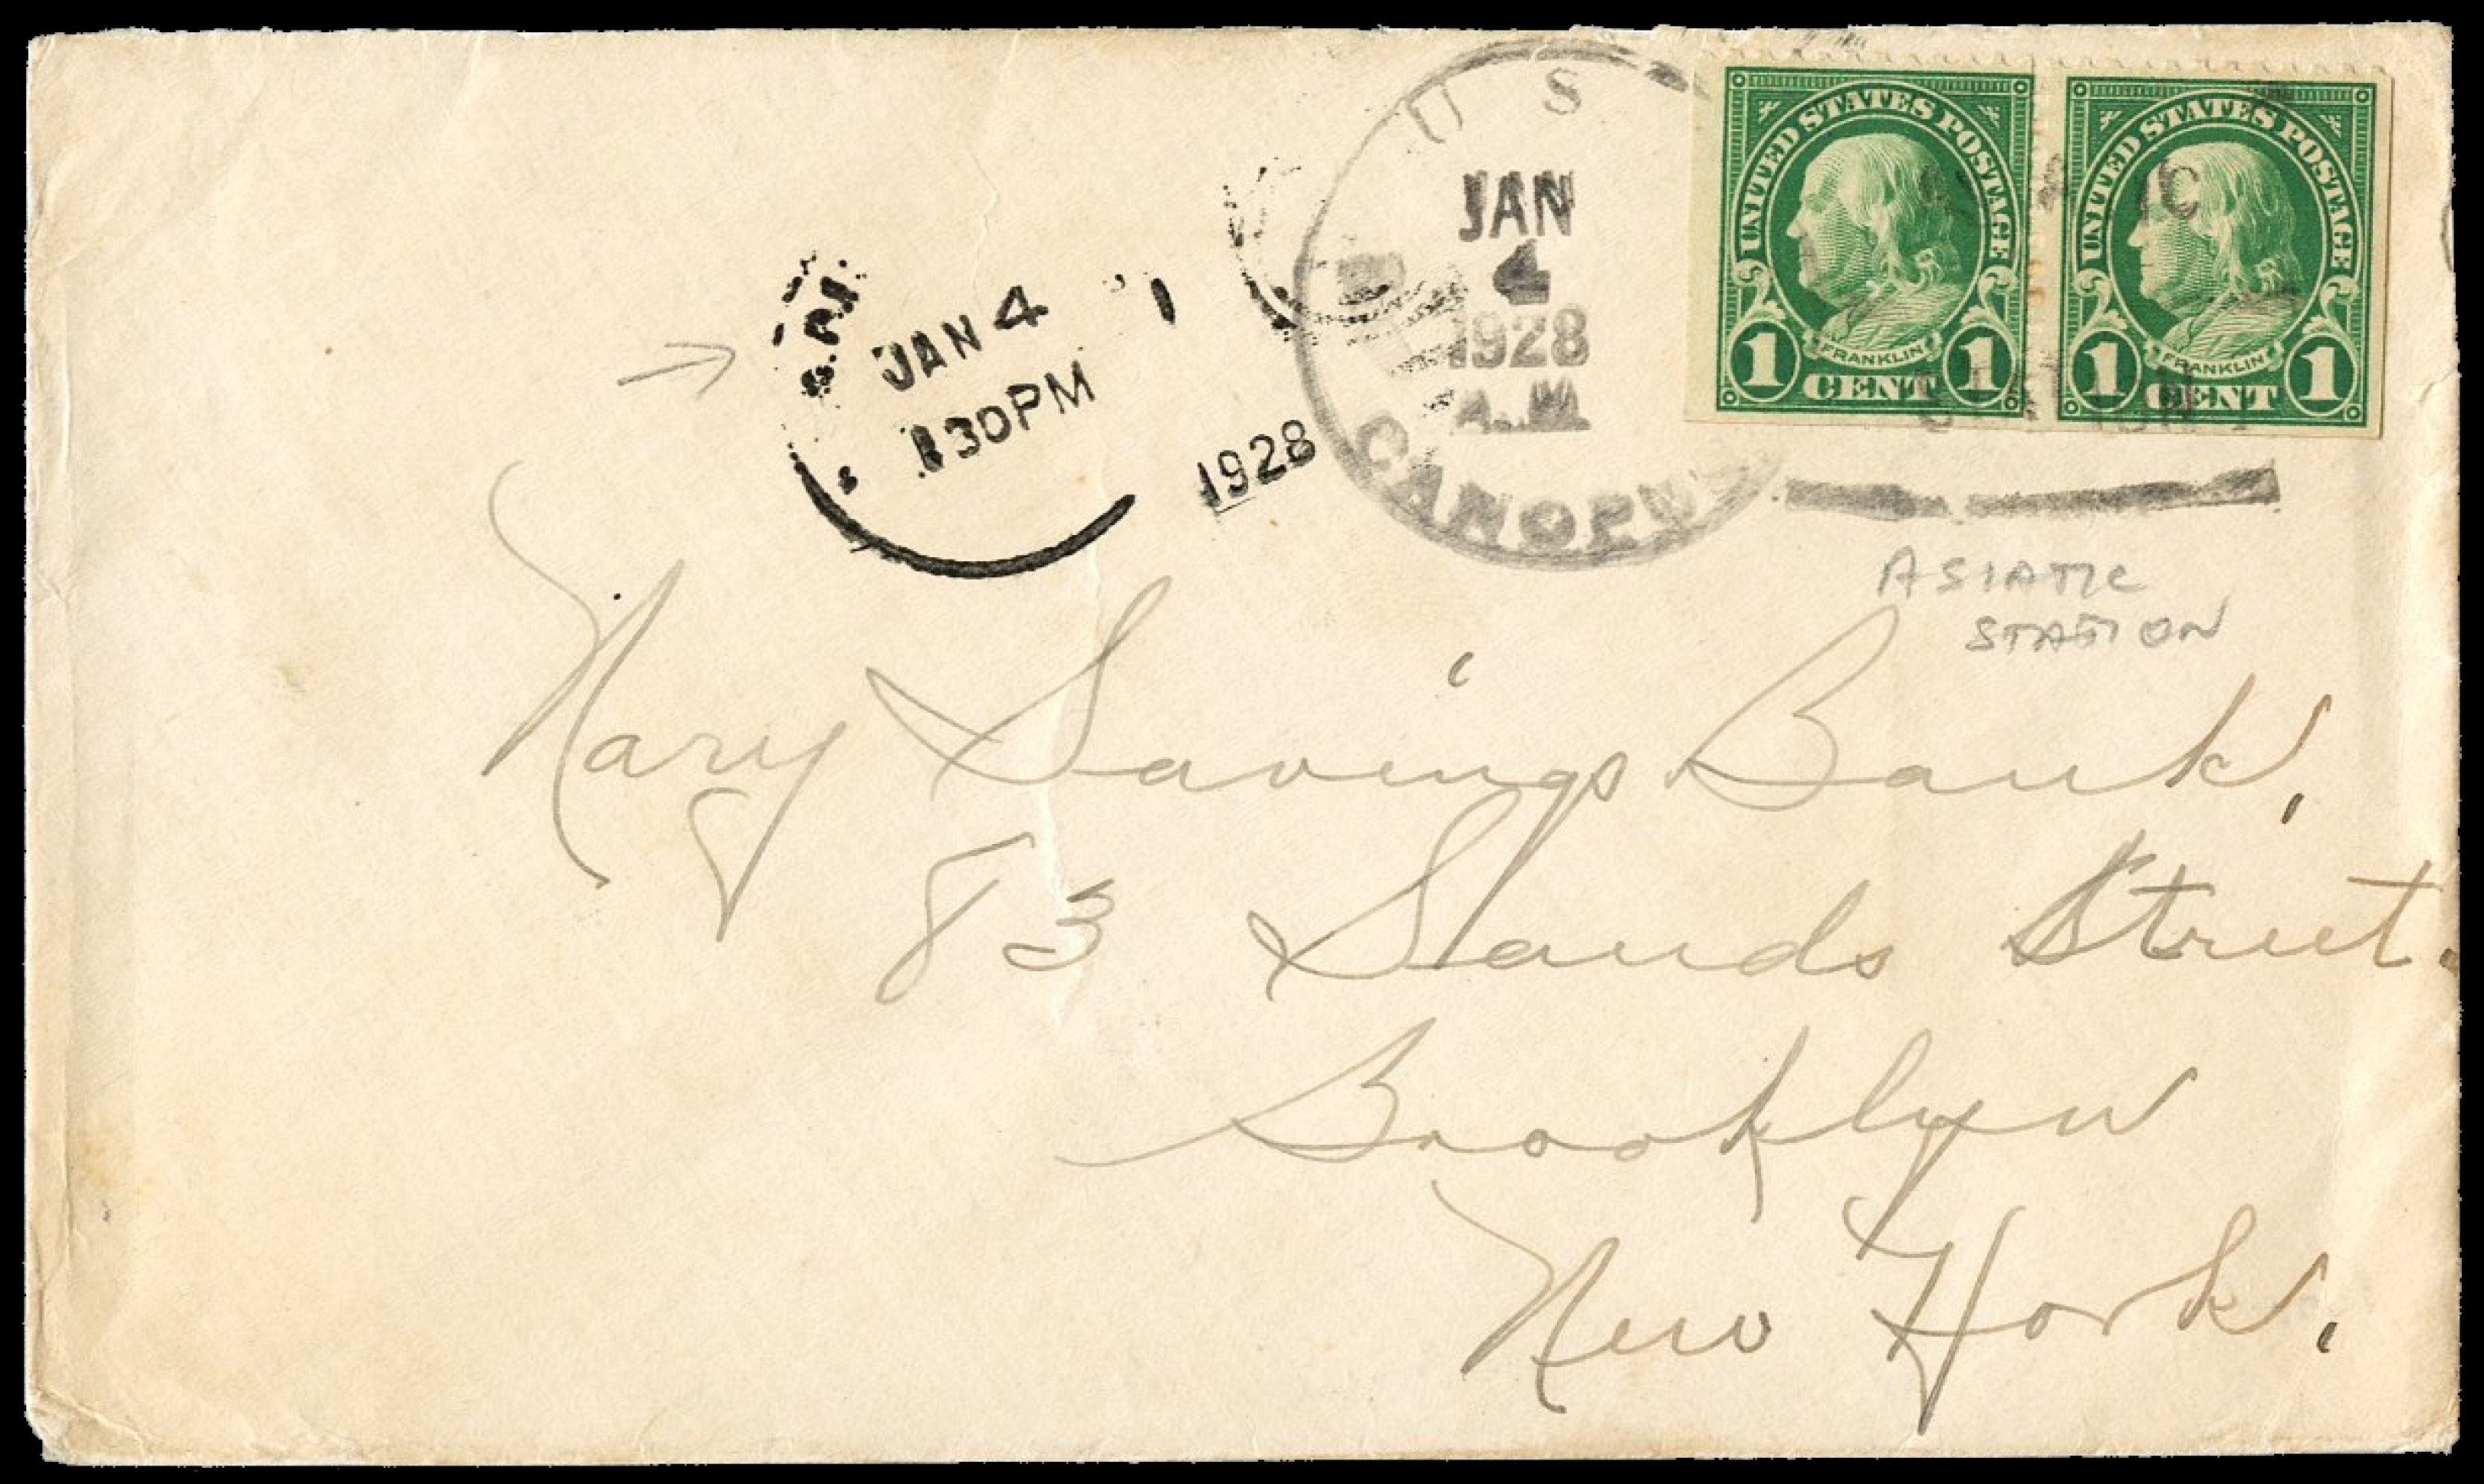 U S
JAN
4
1928
A.M.
CANOPUS
JAN 4
130PM
1928
UNITED STATES POSTAGE
FRANKLIN
1 CENT 1
UNITED STATES POSTAGE
FRANKLIN
1 CENT 1
ASIATIC
STATION
Navy Savings Bank,
83 Sands Street.
Brooklyn
New York.